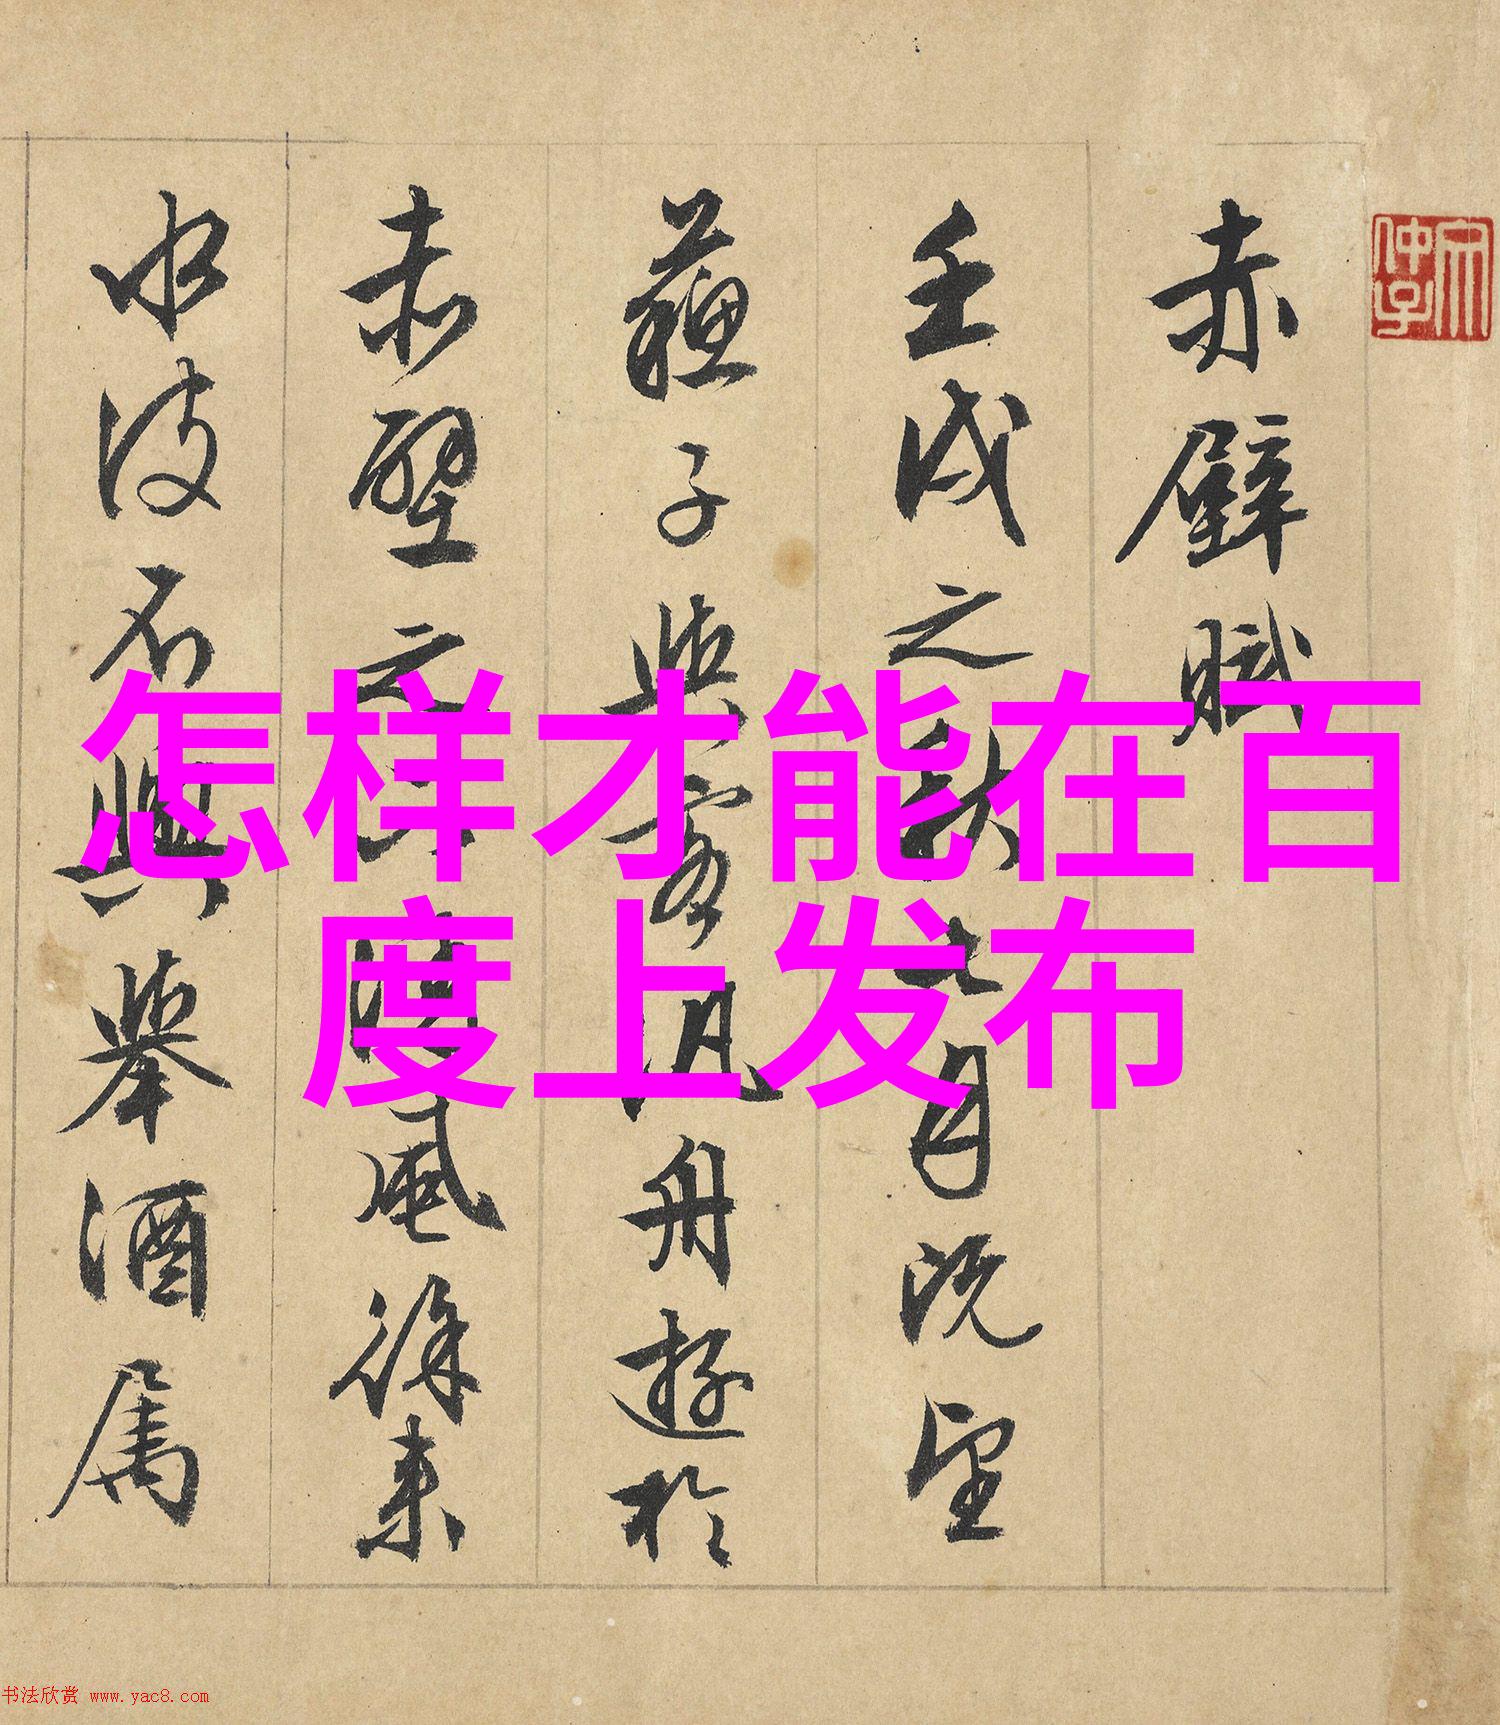 赤壁賦
壬戌之秋七月既望
蘇子與客汎舟遊於
赤壁之下清風徐来
水波不興舉酒属
怎样才能在百
度上发布
书法欣赏 www.yac8.com